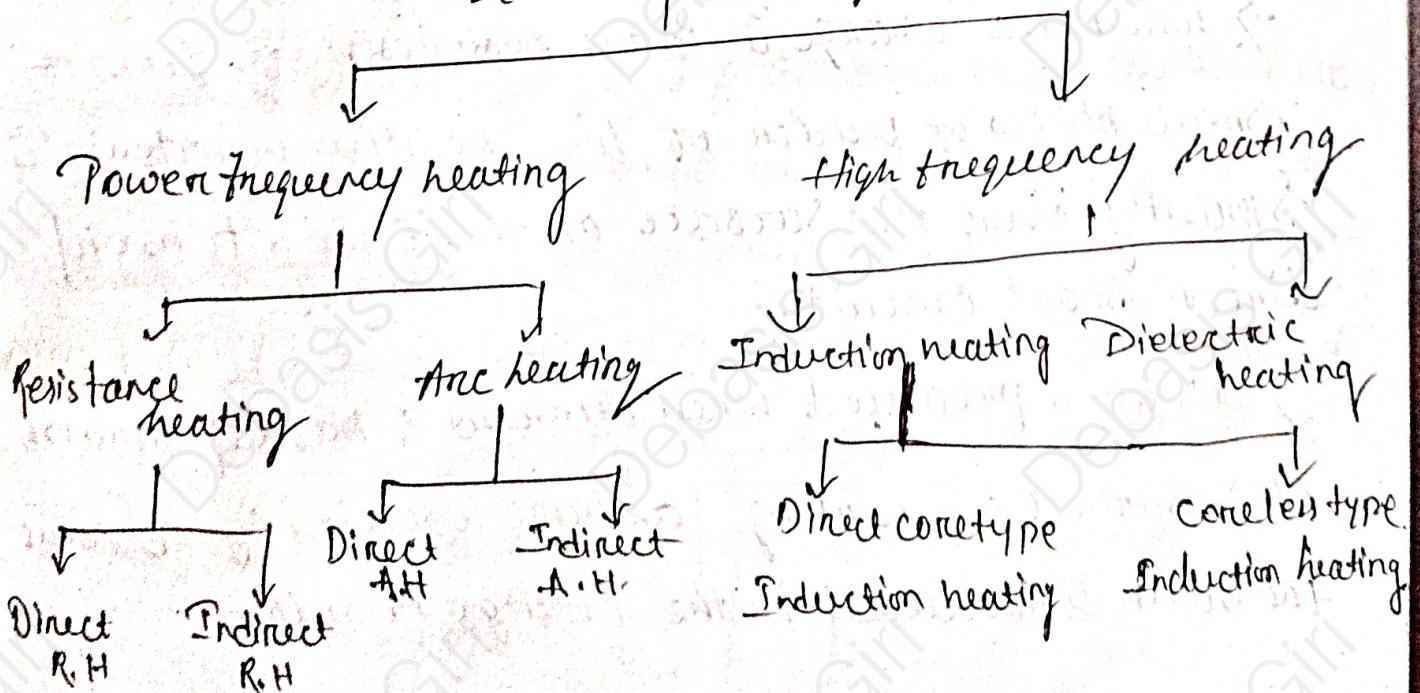 Power frequency heating
High frequency heating
Resistance
heating
Arc heating
Induction heating
Dielectric
heating
Direct
R.H
Indirect
R.H
Direct
A.H
Indirect
A.H.
Direct core type
Induction heating
Coreless type
Induction heating
Debasis Giri